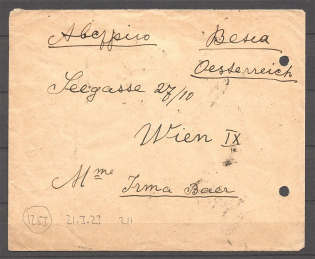 Австрiю Весна
Oesterreich
Seegasse 27/10
Wien IX
Mme Irma Baer
1253 21.I.23 2/1